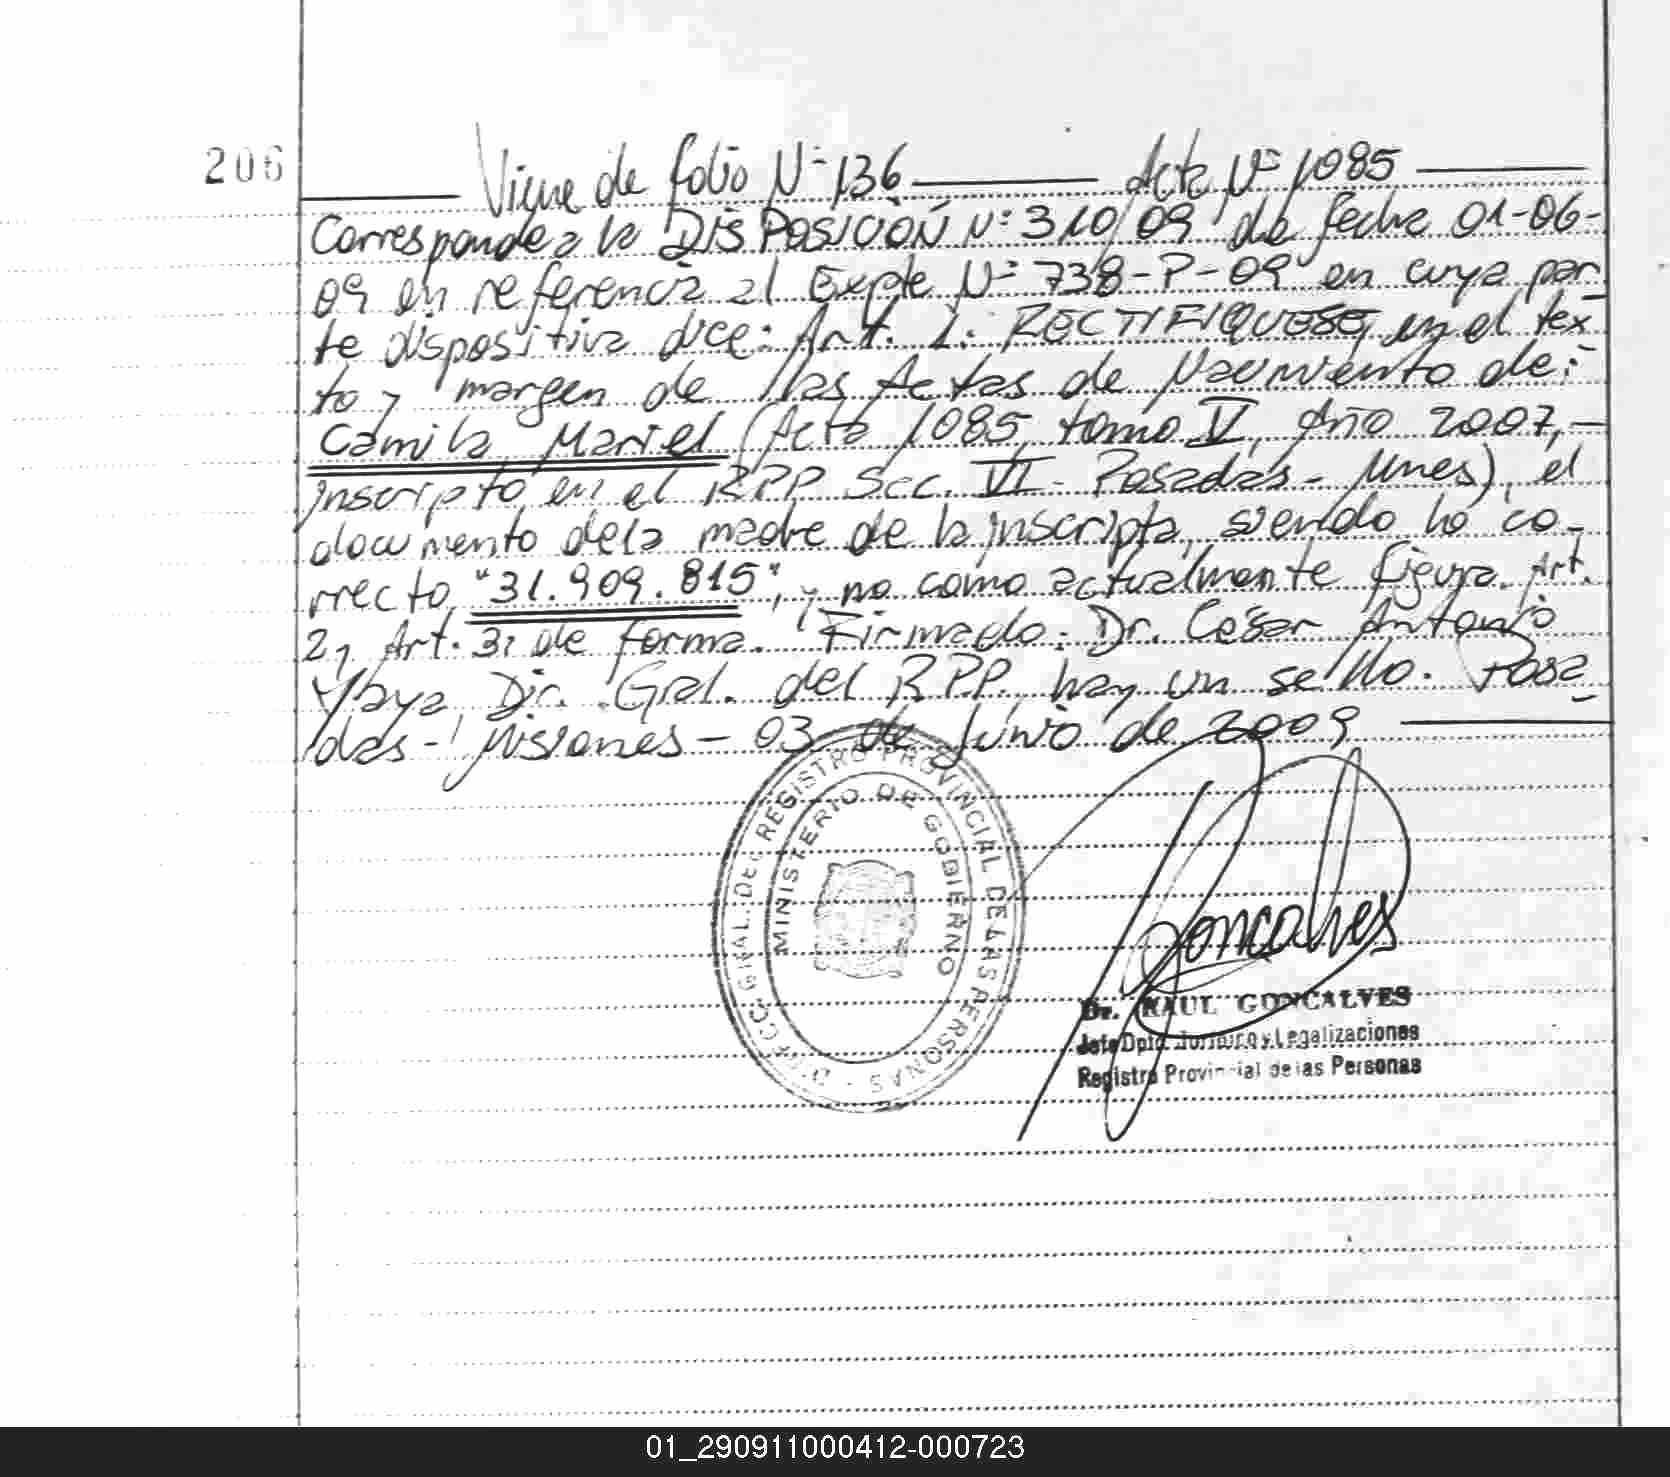 206
Viene de folio Nº 136 Acta Nº 1085
Corresponde a la DISPOSICIÓN Nº 310/09 de fecha 01-06-
09 en referencia al Expte Nº 738-P-09 en cuya par
te dispositiva dice: Art. 1: RECTIFIQUESE, en el tex
to y margen de las Actas de Nacimiento de:
Camila Mariel (Acta 1085, tomo V, Año 2007,-
inscripto en el RPP Secc. VI - Posadas - Mnes), el
documento de la madre de la inscripta, siendo lo co-
rrecto "31.909.815", y no como actualmente figura. Art.
2, Art. 3: de forma. Firmado: Dr. César Antonio
Dir. Gral. del RPP, hay un sello. Posa
das - Misiones - 03 de Junio de 2009
REGISTRO PROVINCIAL DE LAS PERSONAS
MINISTERIO DE GOBIERNO
Goncalves
Dr. RAUL GONCALVES
Jefe Dpto. Jurídico y Legalizaciones
Registro Provincial de las Personas
01_290911000412-000723